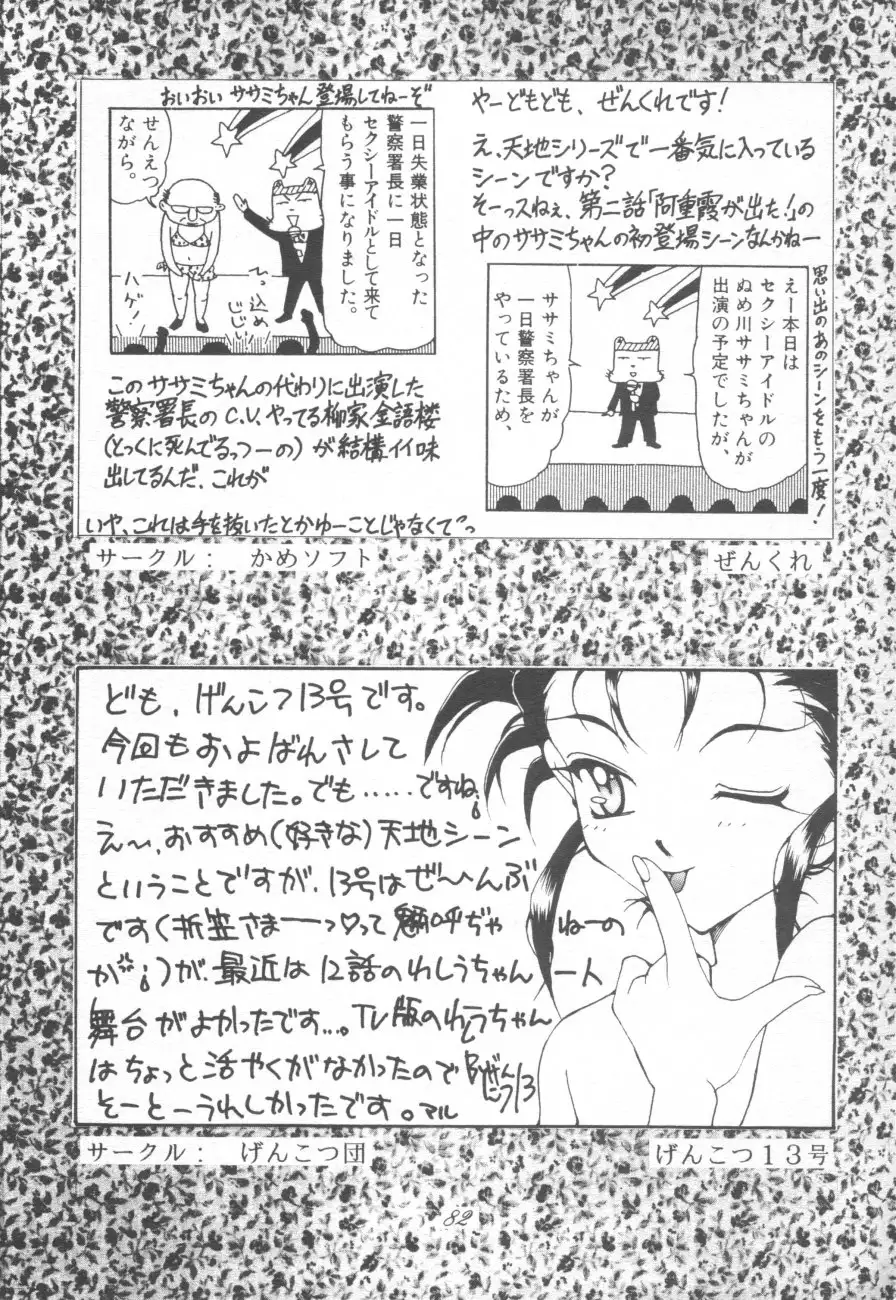 やーどもども、ぜんくれです!
え、天地シリーズで一番気に入っている
シーンですか?
そーっスねぇ、第二話「阿重霞が出た!」の
中のササミちゃんの初登場シーンなんかねー
思い出のあのシーンをもう一度!
えー本日は
セクシーアイドルの
ぬめ川ササミちゃんが
出演の予定でしたが、
ササミちゃんが
一日警察署長を
やっているため、
おいおい ササミちゃん登場してねーぞ
一日失業状態となった
警察署長に一日
セクシーアイドルとして来て
もらう事になりました。
せんえつ
ながら。
ハゲ!
ひっ込め
じじい!
このササミちゃんの代わりに出演した
警察署長のC.V.やってる柳家金語楼
(とっくに死んでるっつーの)が結構イイ味
出してるんだ、これが
いや、これは手を抜いたとかゆーことじゃなくてっ
サークル: かめソフト
ぜんくれ
ども、げんこつ13号です。
今回もおよばんさして
いただきました。でも……ですね。
え〜、おすすめ(好きな)天地シーン
ということですが、13号はぜ〜んぶ
です(折笠さまーっ♡って 呼ぢゃ ねーの
が、最近は12話のわしうちゃん ート
舞台がよかったです…。TV版のわしうちゃん
はちょっと活やくがなかったので
そーとーうれしかったです。マル
げんこつ13
サークル: げんこつ団
げんこつ13号
82